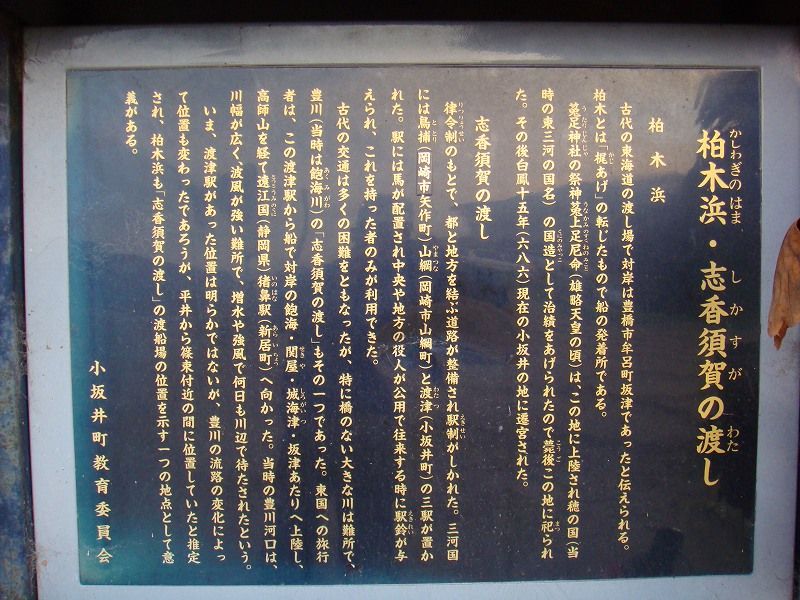 柏木浜・志香須賀の渡し
かしわぎのはま しかすが わた
柏木浜
古代の東海道の渡し場で対岸は豊橋市牟呂町坂津であったと伝えられる。
柏木とは「梶あげ」の転じたもので船の発着所である。
菟足神社の祭神菟上足尼命(雄略天皇の頃)は、この地に上陸され穂の国(当
時の東三河の国名)の国造として治績をあげられたので薨後この地に祀られ
た。その後白鳳十五年(六八六)現在の小坂井の地に遷宮された。
志香須賀の渡し
律令制のもとで、都と地方を結ぶ道路が整備され駅制がしかれた。三河国
には鳥捕(岡崎市矢作町)山綱(岡崎市山綱町)と渡津(小坂井町)の三駅が置か
れた。駅には馬が配置され中央や地方の役人が公用で往来する時に駅鈴が与
えられ、これを持った者のみが利用できた。
古代の交通は多くの困難をともなったが、特に橋のない大きな川は難所で、
豊川(当時は飽海川)の「志香須賀の渡し」もその一つであった。東国への旅行
者は、この渡津駅から船で対岸の飽海・関屋・城海津・坂津あたりへ上陸し、
高師山を経て遠江国(静岡県)猪鼻駅(新居町)へ向かった。当時の豊川河口は、
川幅が広く、波風が強い難所で、増水や強風で何日も川辺で待たされたという。
いま、渡津駅があった位置は明らかではないが、豊川の流路の変化によっ
て位置も変わったであろうが、平井から篠束付近の間に位置していたと推定
され、柏木浜も「志香須賀の渡し」の渡船場の位置を示す一つの地点として意
義がある。
小坂井町教育委員会